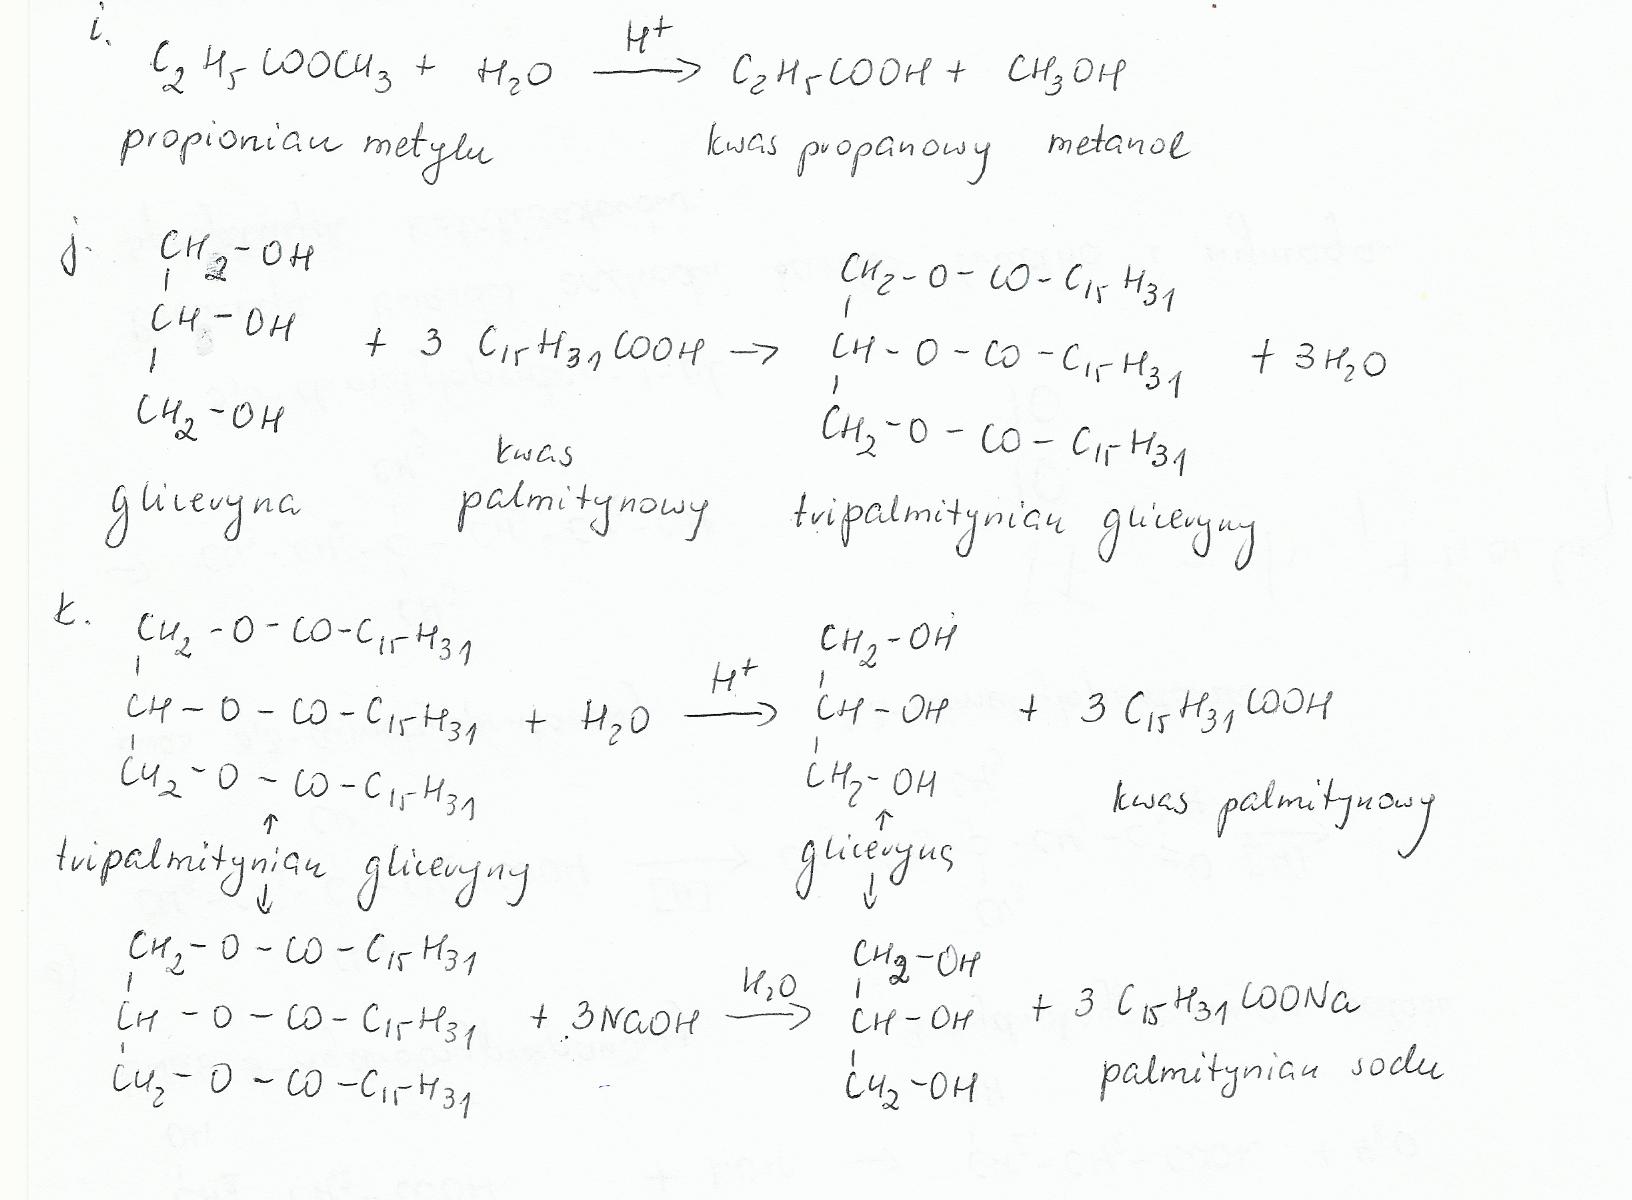 i.
C₂H₅COOCH₃ + H₂O —H⁺→ C₂H₅COOH + CH₃OH
propionian metylu kwas propanowy metanol
j.
CH₂-OH CH₂-O-CO-C₁₅H₃₁
CH-OH + 3 C₁₅H₃₁COOH → CH-O-CO-C₁₅H₃₁ + 3H₂O
CH₂-OH CH₂-O-CO-C₁₅H₃₁
gliceryna kwas palmitynowy tripalmitynian gliceryny
k.
CH₂-O-CO-C₁₅H₃₁ CH₂-OH
CH-O-CO-C₁₅H₃₁ + H₂O —H⁺→ CH-OH + 3 C₁₅H₃₁COOH
CH₂-O-CO-C₁₅H₃₁ CH₂-OH kwas palmitynowy
↑ ↑
tripalmitynian gliceryny gliceryna
↓ ↓
CH₂-O-CO-C₁₅H₃₁ CH₂-OH
CH-O-CO-C₁₅H₃₁ + 3NaOH —H₂O→ CH-OH + 3 C₁₅H₃₁COONa
CH₂-O-CO-C₁₅H₃₁ CH₂-OH palmitynian sodu